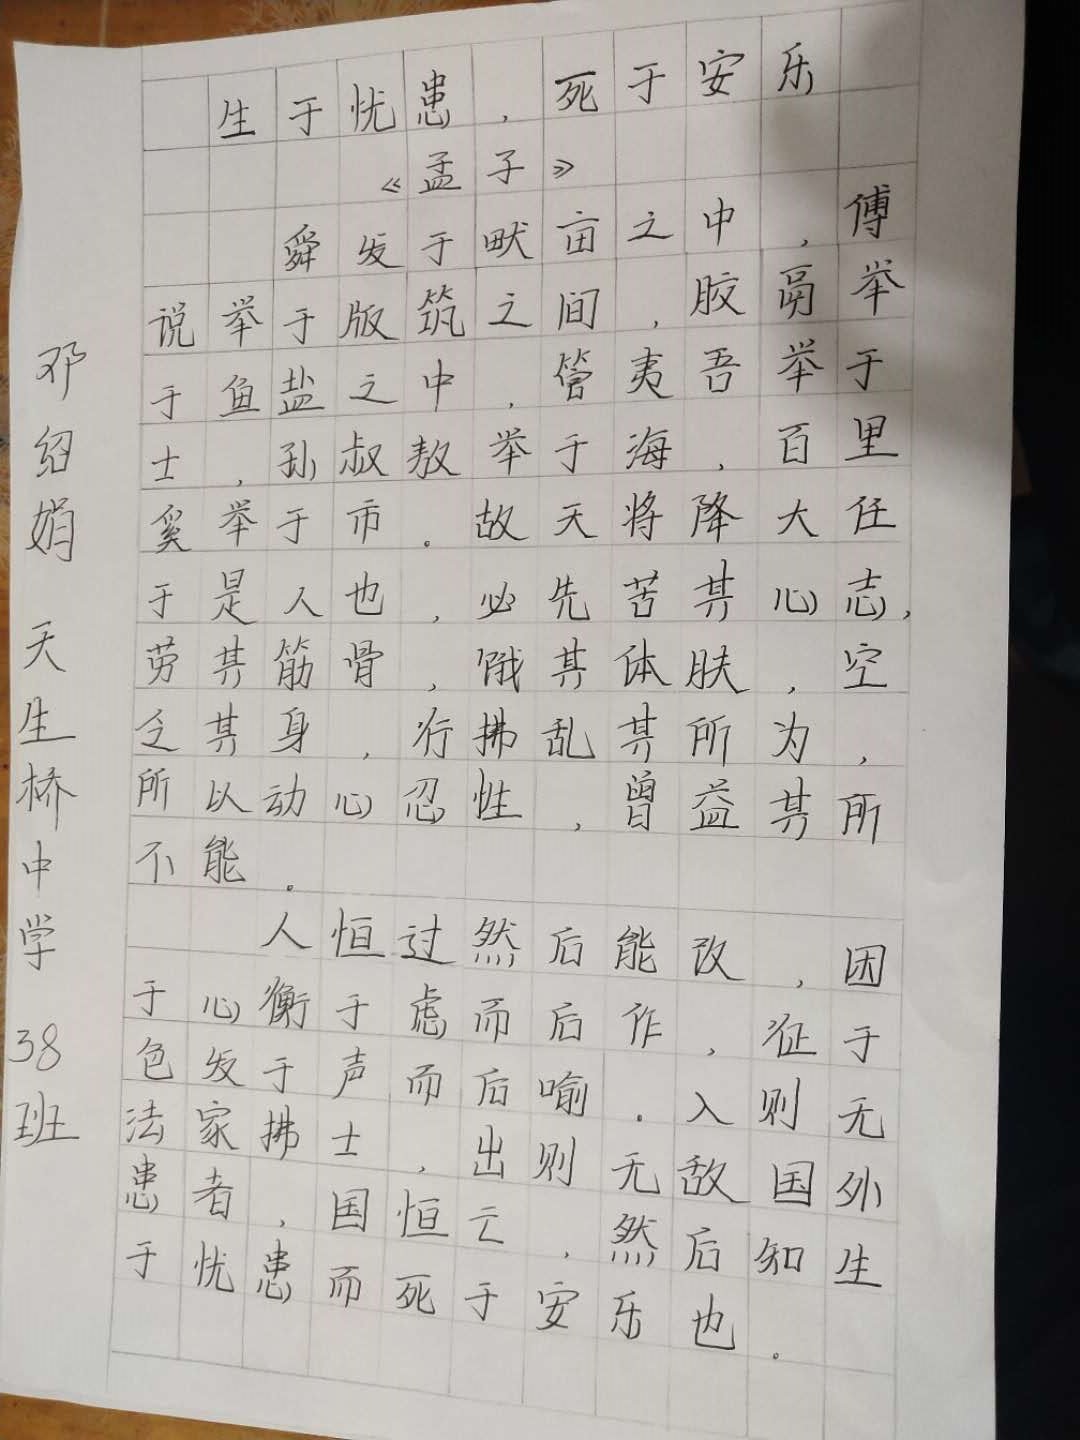 生于忧患，死于安乐
《孟子》
舜发于畎亩之中，傅
说举于版筑之间，胶鬲举
于鱼盐之中，管夷吾举于
士，孙叔敖举于海，百里
奚举于市。故天将降大任
于是人也，必先苦其心志，
劳其筋骨，饿其体肤，空
乏其身，行拂乱其所为，
所以动心忍性，曾益其所
不能。
人恒过然后能改，困
于心衡于虑而后作，征于
色发于声而后喻．入则无
法家拂士，出则无敌国外
患者，国恒亡，然后知生
于忧患而死于安乐也。
邓绍娟 天生桥中学 38班